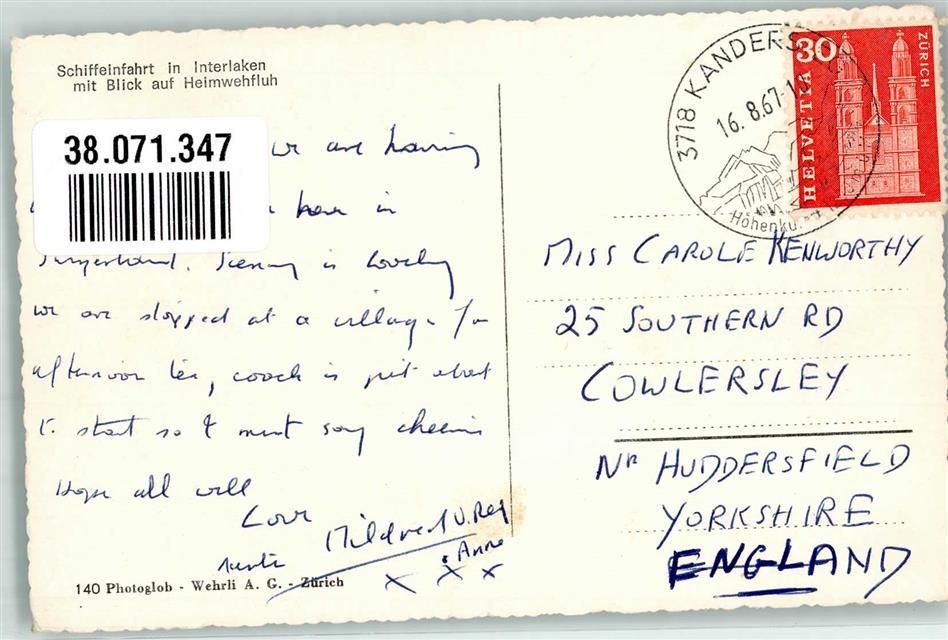 Schiffeinfahrt in Interlaken
mit Blick auf Heimwehfluh
38.071.347
we are having
here in
Switzerland. Scenery is lovely
we are stopped at a village for
afternoon tea, coach is just about
to start so I must say cheerio
Hope all well
Love
Auntie Mildred U. Reg
& Anne
x x x
140 Photoglob - Wehrli A. G. - Zürich
3718 KANDERS
16.8.67-1
Höhenku
30
HELVETIA
ZÜRICH
MISS CAROLE KENWORTHY
25 SOUTHERN RD
COWLERSLEY
NR HUDDERSFIELD
YORKSHIRE
ENGLAND